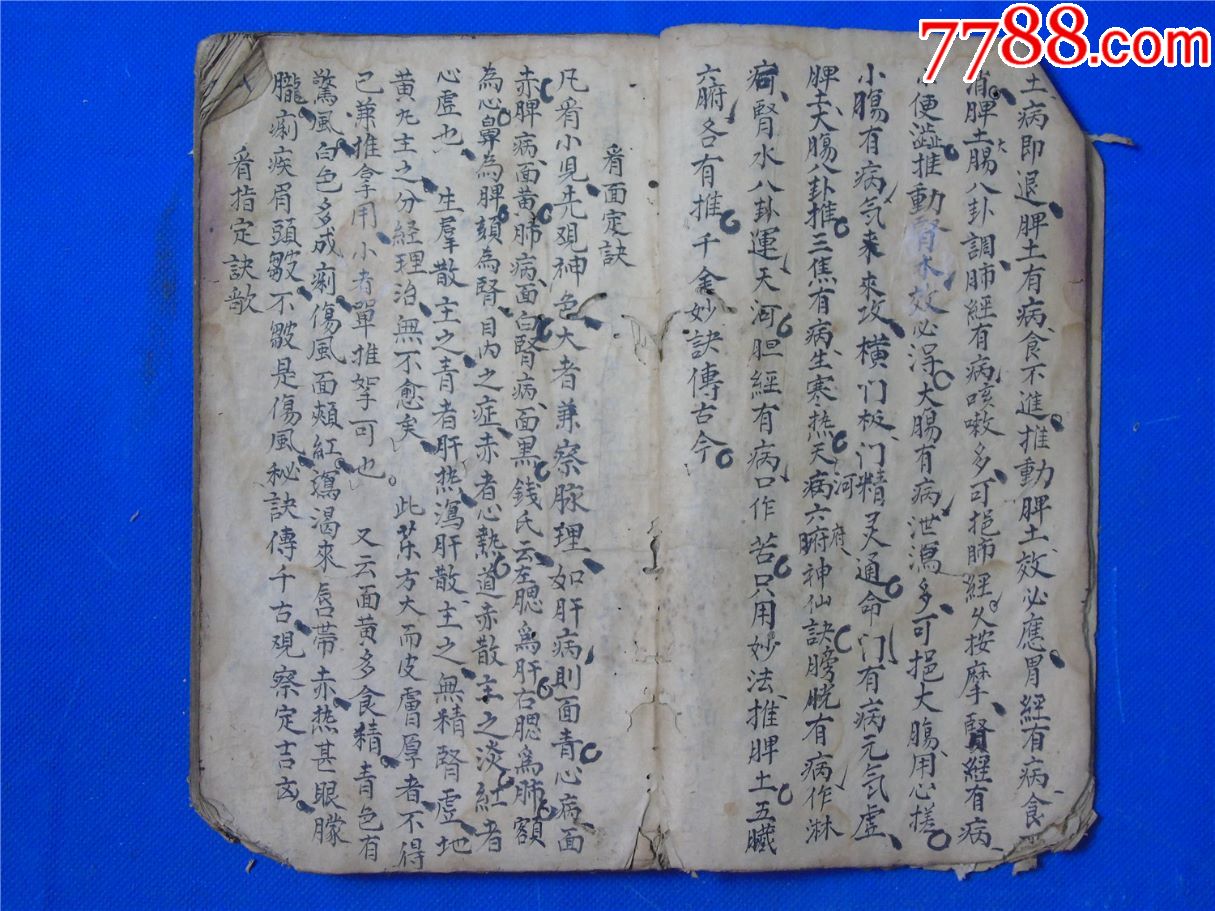 7788.com
土病即退脾土有病食不進推動脾土效必應胃經有病食
消脾土大腸八卦調肺經有病咳嗽多可挹肺經久按摩賢經有病
小便澁推動腎水效必淂大腸有病泄瀉多可挹大腸用心搓
小腸有病気来攻橫门板门精灵通命门有病元気虛
脾土大腸八卦推三焦有病生寒热天河病六腑神仙訣膀胱有病作淋
疴腎水八卦運天河胆經有病口作苦只用妙法推脾土五臟
六腑各有推千金妙訣傳古今
看面定訣
凡看小児先观神色大者兼察脉理如肝病則面青心病面
赤脾病面黄肺病面白腎病面黑錢氏云左腮爲肝右腮爲肺額
為心鼻為脾頦為腎目内之症赤者心熱道赤散主之淡紅者
心虛也 生犀散主之青者肝热瀉肝散主之無精腎虛地
黄丸主之分経理治無不愈矣 此等方大而皮膚厚者不得
已兼推拿用小者單推拏可也 又云面黄多食精青色有
驚風白色多成痢傷風面頰紅瀉渴来唇帶赤热甚眼朦
朧痢疾眉頭皺不皺是傷風秘訣傳千古观察定吉凶
看指定訣歌